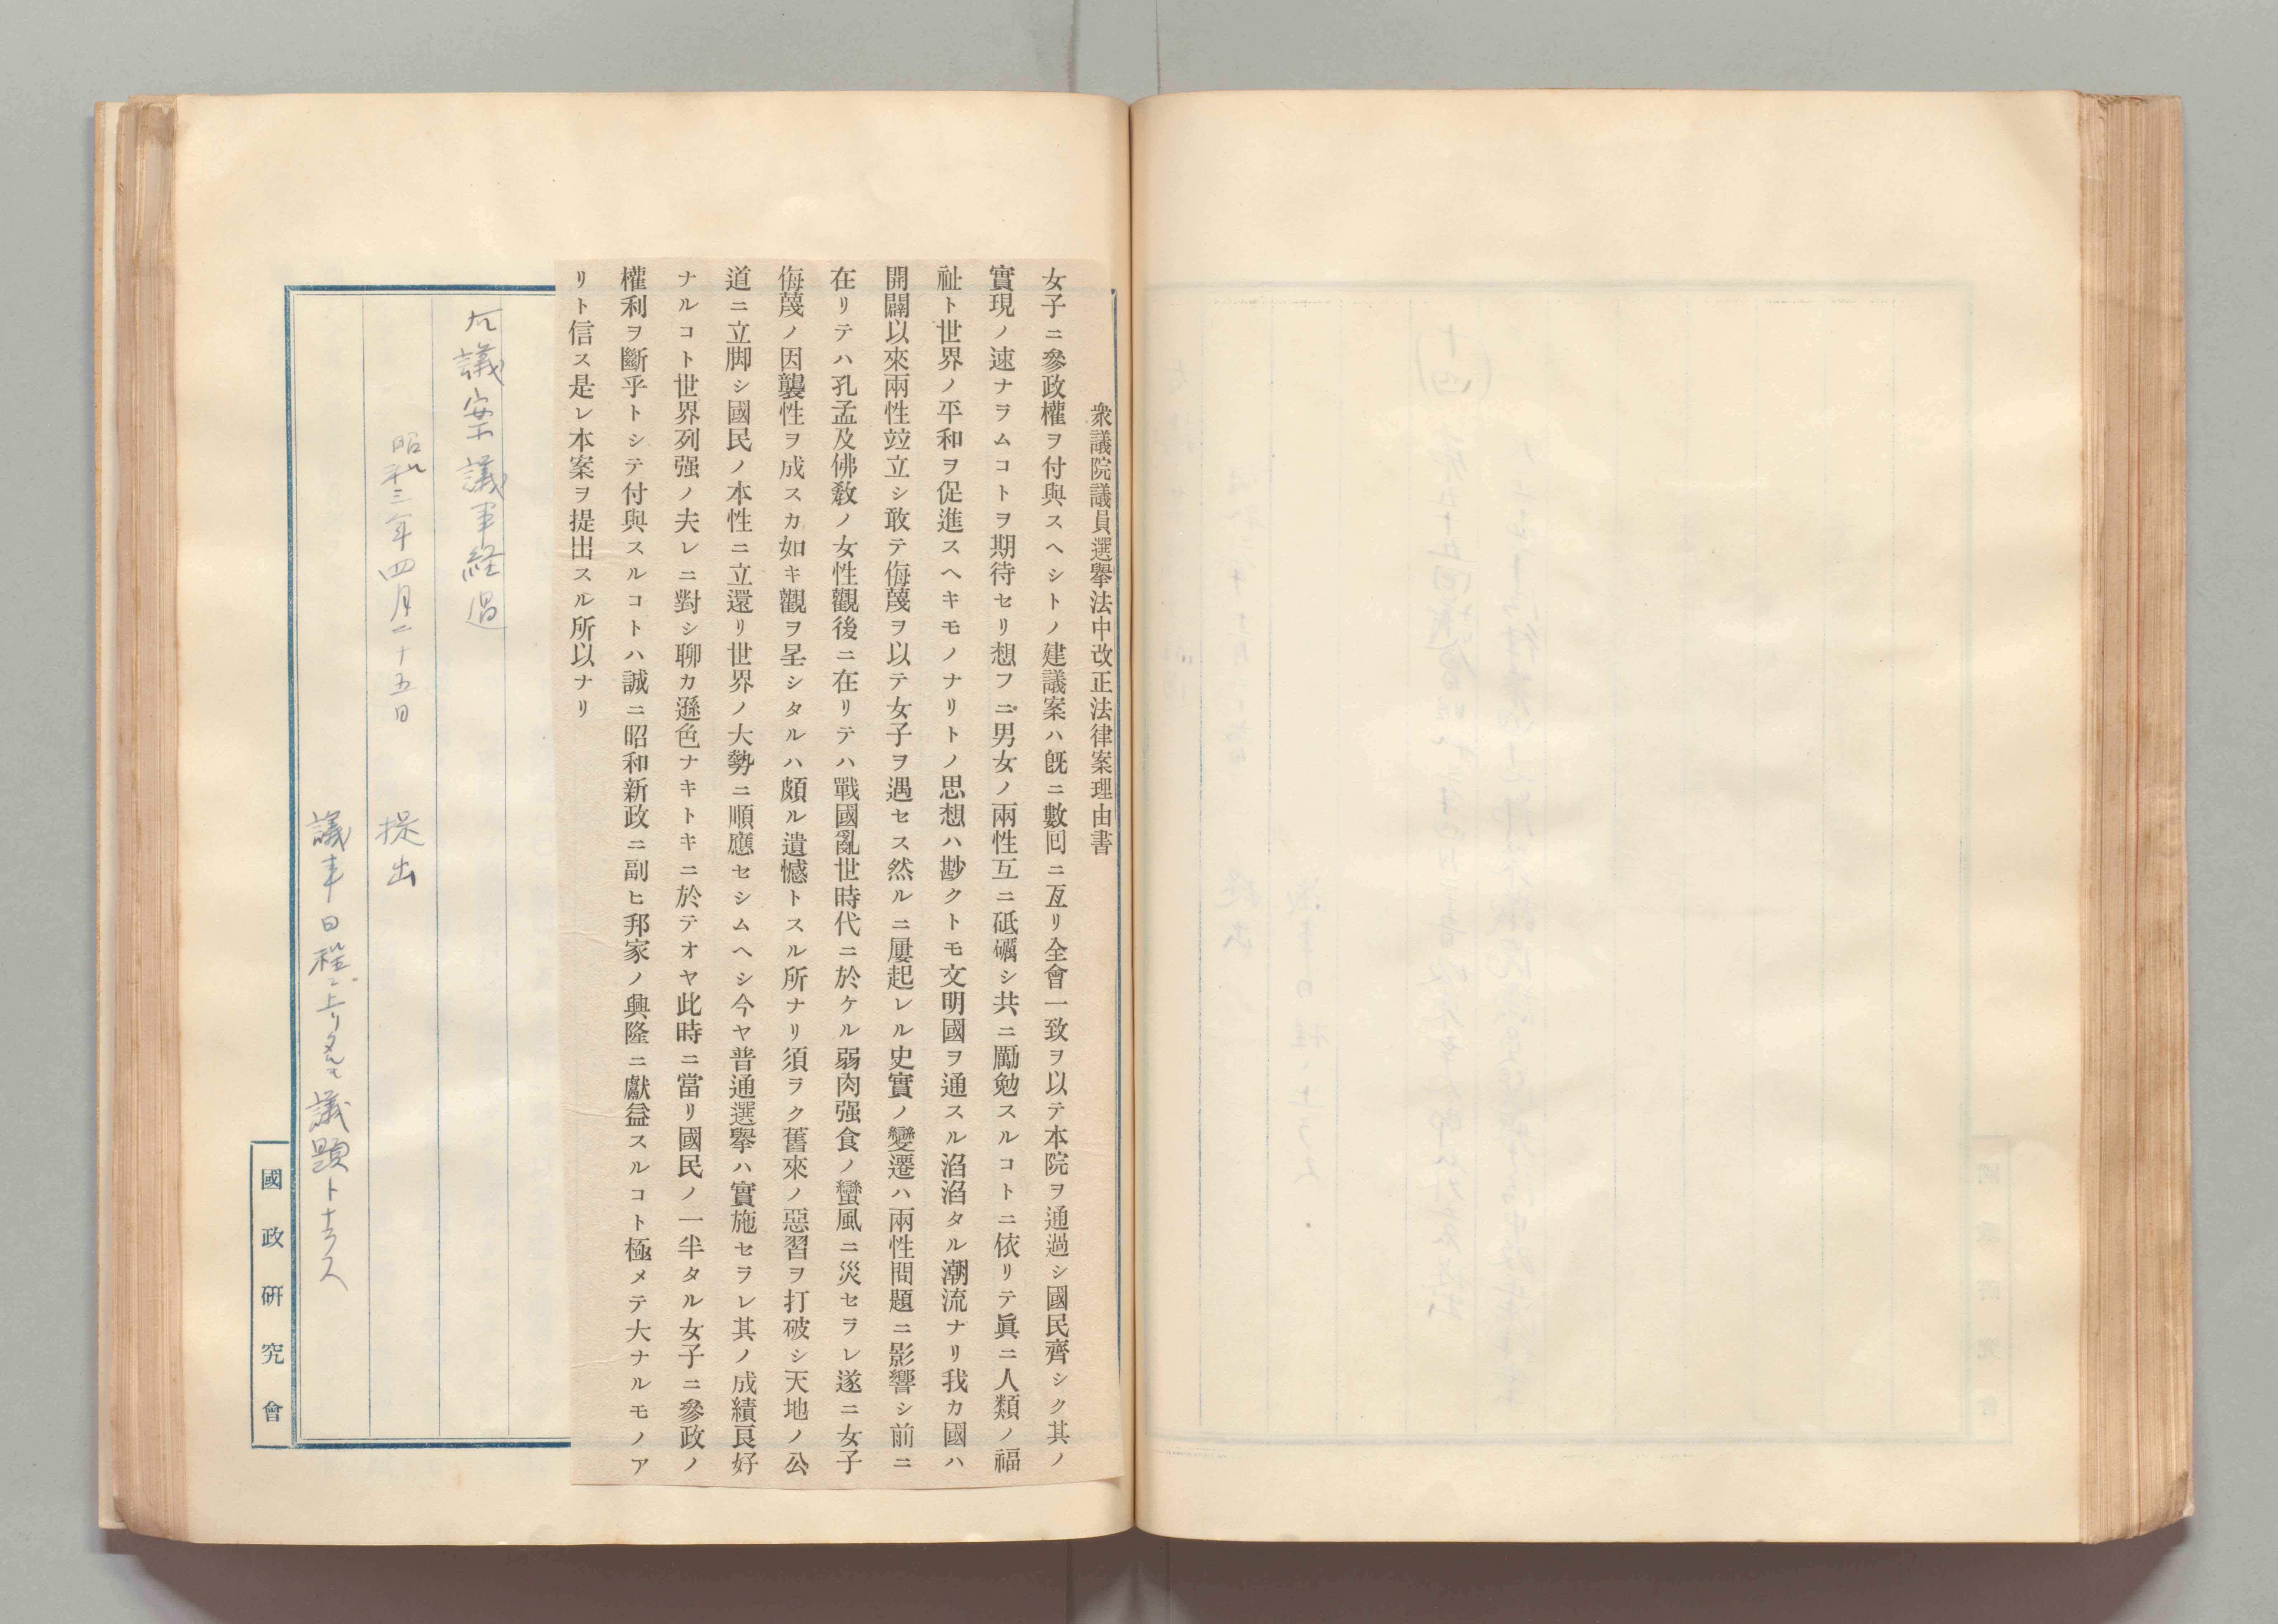 衆議院議員選擧法中改正法律案理由書
女子ニ參政權ヲ付與スヘシトノ建議案ハ旣ニ數囘ニ亙リ全會一致ヲ以テ本院ヲ通過シ國民齊シク其ノ
實現ノ速ナラムコトヲ期待セリ想フニ男女ノ兩性互ニ砥礪シ共ニ勵勉スルコトニ依リテ眞ニ人類ノ福
祉ト世界ノ平和ヲ促進スヘキモノナリトノ思想ハ尠クトモ文明國ヲ通スル滔滔タル潮流ナリ我カ國ハ
開闢以來兩性竝立シ敢テ侮蔑ヲ以テ女子ヲ遇セス然ルニ屢起レル史實ノ變遷ハ兩性問題ニ影響シ前ニ
在リテハ孔孟及佛敎ノ女性觀後ニ在リテハ戰國亂世時代ニ於ケル弱肉强食ノ蠻風ニ災セラレ遂ニ女子
侮蔑ノ因襲性ヲ成スカ如キ觀ヲ呈シタルハ頗ル遺憾トスル所ナリ須ラク舊來ノ惡習ヲ打破シ天地ノ公
道ニ立脚シ國民ノ本性ニ立還リ世界ノ大勢ニ順應セシムヘシ今ヤ普通選擧ハ實施セラレ其ノ成績良好
ナルコト世界列强ノ夫レニ對シ聊カ遜色ナキトキニ於テオヤ此時ニ當リ國民ノ一半タル女子ニ參政ノ
權利ヲ斷乎トシテ付與スルコトハ誠ニ昭和新政ニ副ヒ邦家ノ興隆ニ獻益スルコト極メテ大ナルモノア
リト信ス是レ本案ヲ提出スル所以ナリ
議案議事経過
昭和三年四月二十五日 提出
議事日程ニ上リタルモ議題トナラス
國政硏究會